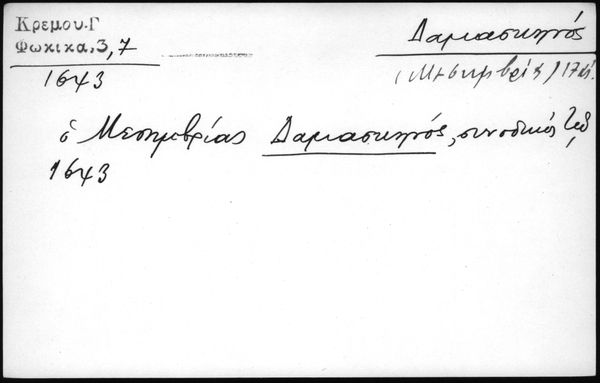 Κρεμου.Γ
Φωκικα,3,7
1643
Δαμασκηνός
(Μεσημβρίας) 17 αι.
ὁ Μεσημβρίας Δαμασκηνός, συνοδικός
1643